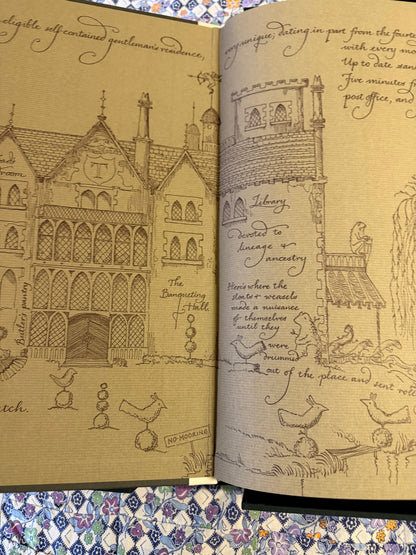 eligible self-contained gentleman's residence,
very unique; dating in part from the fourte
with every mo
Up to date san
Five minutes f
post office, and
T
room
Library
devoted to
lineage &
ancestry
The
Banqueting
Hall
Butler's pantry
Here's where the
stoats & weasels
made a nuisance
of themselves
until they
were
drumm
out of the place and sent
atch.
NO MOORING